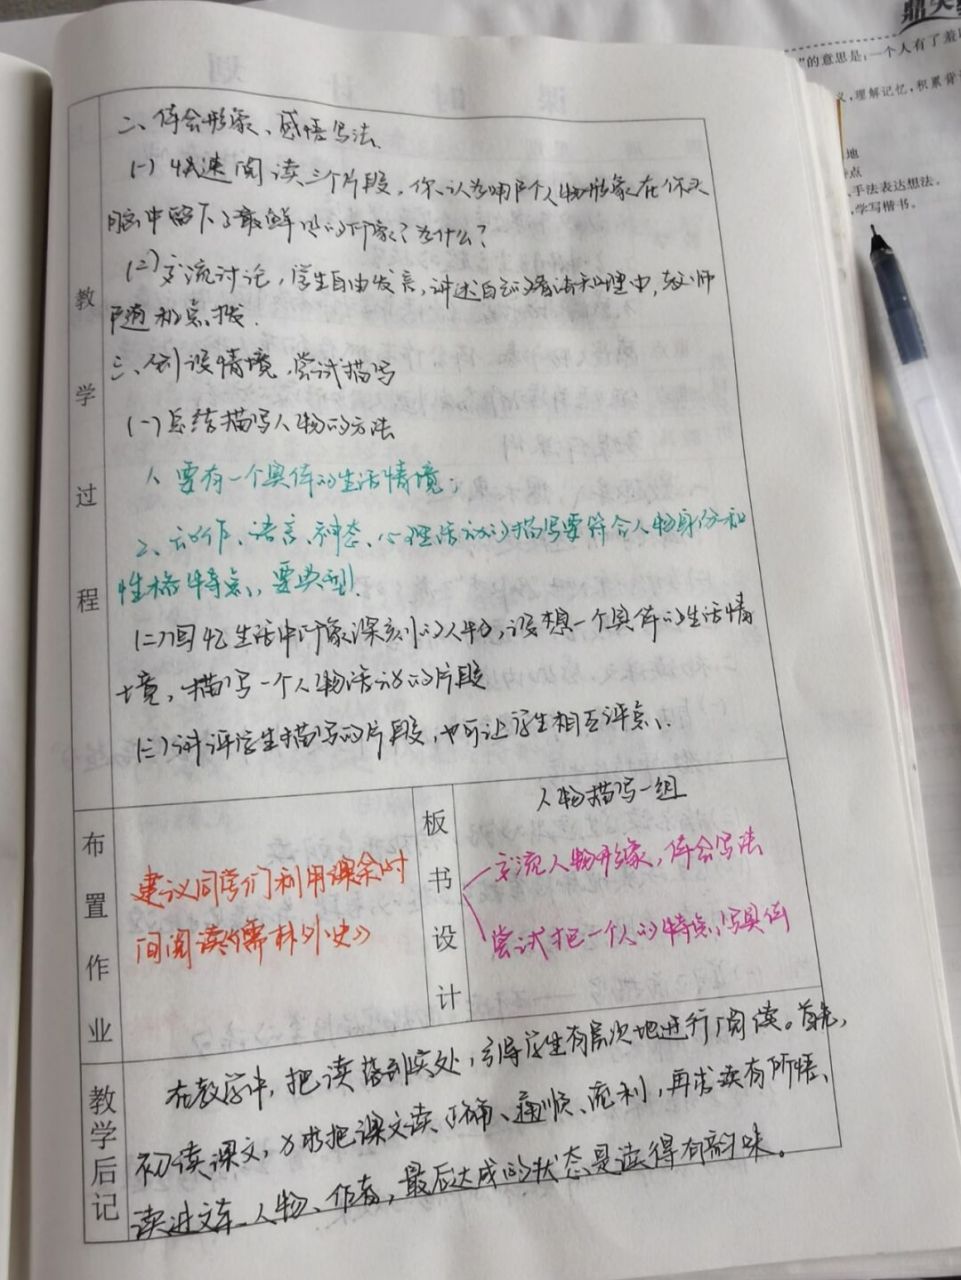 鼎尖
"的意思是:一个人有了羞
义,理解记忆,积累背
地
点
、手法表达想法。
,学写楷书。
课 时 计 划
教学过程
二、体会形象、感悟写法
(一)快速阅读三个片段,你认为哪个人物形象在你头
脑中留下了最鲜明的印象?为什么?
(二)交流讨论,学生自由发言,讲述自己的看法和理由,教师
随机点拨.
三、创设情境,尝试描写
(一)总结描写人物的方法
1、要有一个具体的生活情境;
2、动作、语言、神态、心理活动的描写要符合人物身份和
性格特点,要典型.
(二)回忆生活中印象深刻的人物,设想一个具体的生活情
境,描写一个人物活动的片段
(三)讲评学生描写的片段,也可让学生相互评点.
布置作业
建议同学们利用课余时
间阅读《儒林外史》
板书设计
人物描写一组
交流人物形象,体会写法
尝试把一个人的特点写具体
教学后记
在教学中,把读落到实处,引导学生有层次地进行阅读。首先,
初读课文,力求把课文读正确、通顺、流利,再求读有所悟、
读进文本、人物、作者,最后达成的状态是读得有韵味。